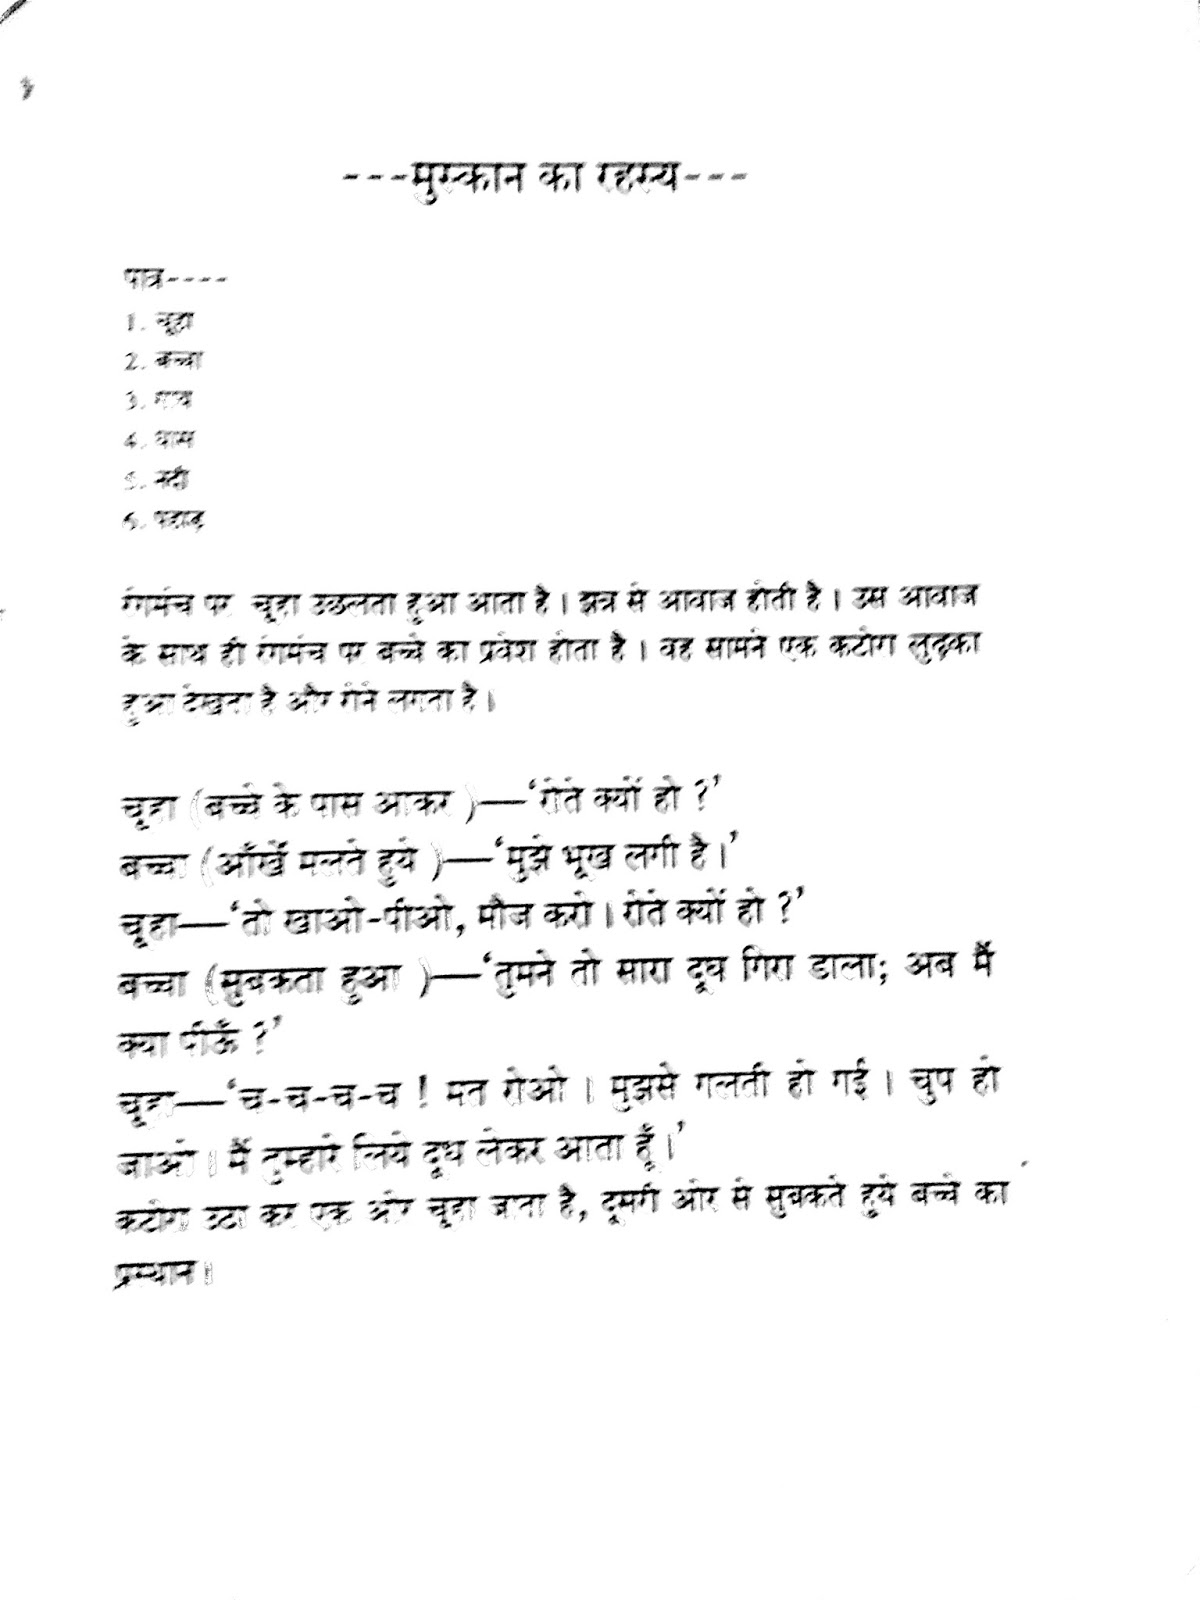 ---मुस्कान का रहस्य---
पात्र----
1. चूहा
2. बच्चा
3. गाय
4. घास
5. नदी
6. पहाड़
रंगमंच पर चूहा उछलता हुआ आता है। झन्न से आवाज होती है। उस आवाज
के साथ ही रंगमंच पर बच्चे का प्रवेश होता है। वह सामने एक कटोरा लुढ़का
हुआ देखता है और रोने लगता है।
चूहा (बच्चे के पास आकर )—‘रोते क्यों हो ?’
बच्चा (आँखें मलते हुये )—‘मुझे भूख लगी है।’
चूहा—‘तो खाओ-पीओ, मौज करो। रोते क्यों हो ?’
बच्चा (सुबकता हुआ )—‘तुमने तो सारा दूध गिरा डाला; अब मैं
क्या पीऊँ ?’
चूहा—‘च-च-च-च ! मत रोओ । मुझसे गलती हो गई । चुप हो
जाओ । मैं तुम्हारे लिये दूध लेकर आता हूँ।’
कटोरा उठा कर एक ओर चूहा जाता है, दूसरी ओर से सुबकते हुये बच्चे का
प्रस्थान।